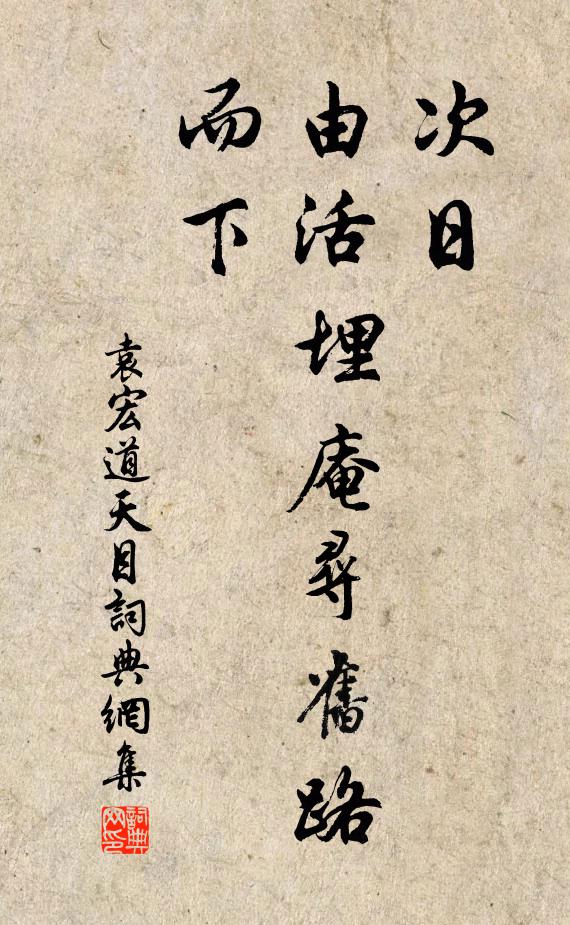 次日
由活埋庵尋舊路
而下
袁宏道天目詞典網集
詞典
网印